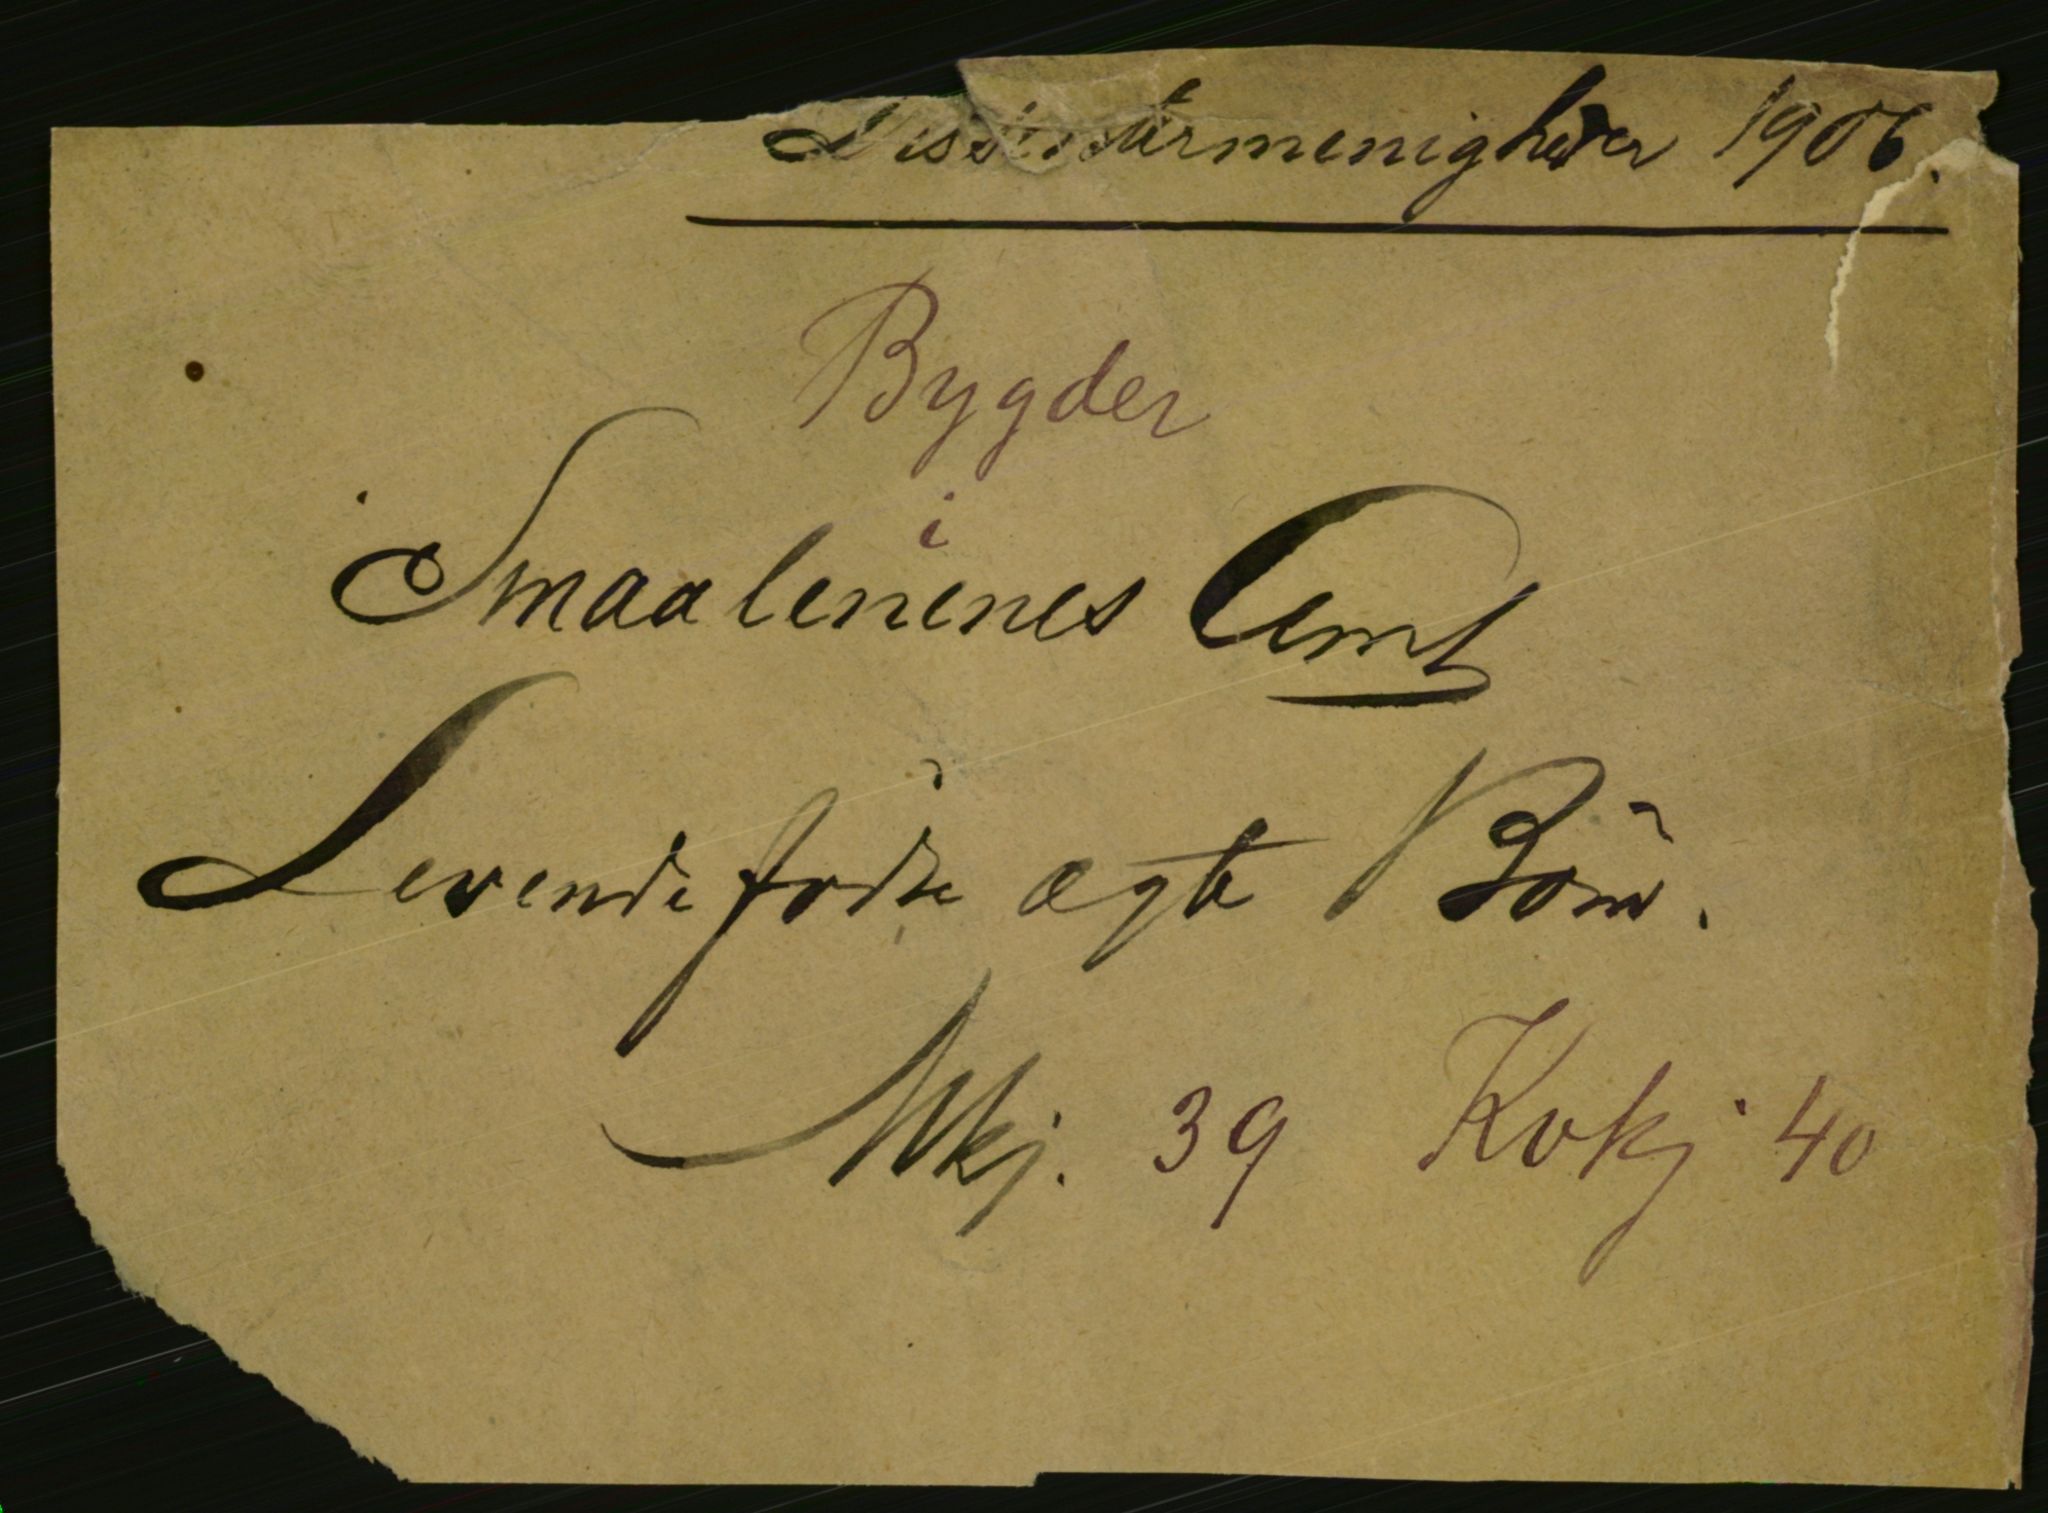 Dissentermenigheder 1906.
Bygder
i
Smaalenenes Amt
Levendefødte ægte Børn.
Mkj. 39 Kvkj. 40